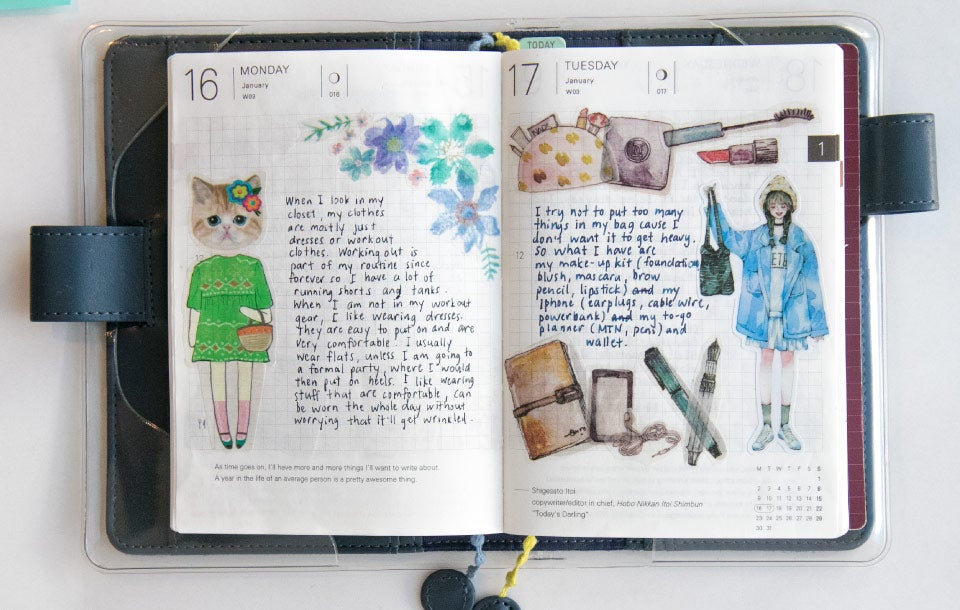 TODAY
16
MONDAY
January
W03
016
When I look in my
closet, my clothes
are mostly just
dresses or workout
clothes. Working out is
part of my routine since
forever so I have a lot of
running shorts and tanks.
When I am not in my workout
gear, I like wearing dresses.
They are easy to put on and are
very comfortable. I usually
wear flats, unless I am going to
a formal party, where I would
then put on heels. I like wearing
stuff that are comfortable, can
be worn the whole day without
worrying that it'll get wrinkled.
As time goes on, I'll have more and more things I'll want to write about.
A year in the life of an average person is a pretty awesome thing.
17
TUESDAY
January
W03
017
1
12
I try not to put too many
things in my bag cause I
don't want it to get heavy.
So what I have are
my make-up kit (foundation,
blush, mascara, brow
pencil, lipstick) and my
iphone (earplugs, cable wire,
powerbank) and my to-go
planner (MTN, pens) and
wallet.
Shigesato Itoi
copywriter/editor in chief, Hobo Nikkan Itoi Shimbun
"Today's Darling"
M T W T F S S
1
2 3 4 5 6 7 8
9 10 11 12 13 14 15
16 17 18 19 20 21 22
23 24 25 26 27 28 29
30 31